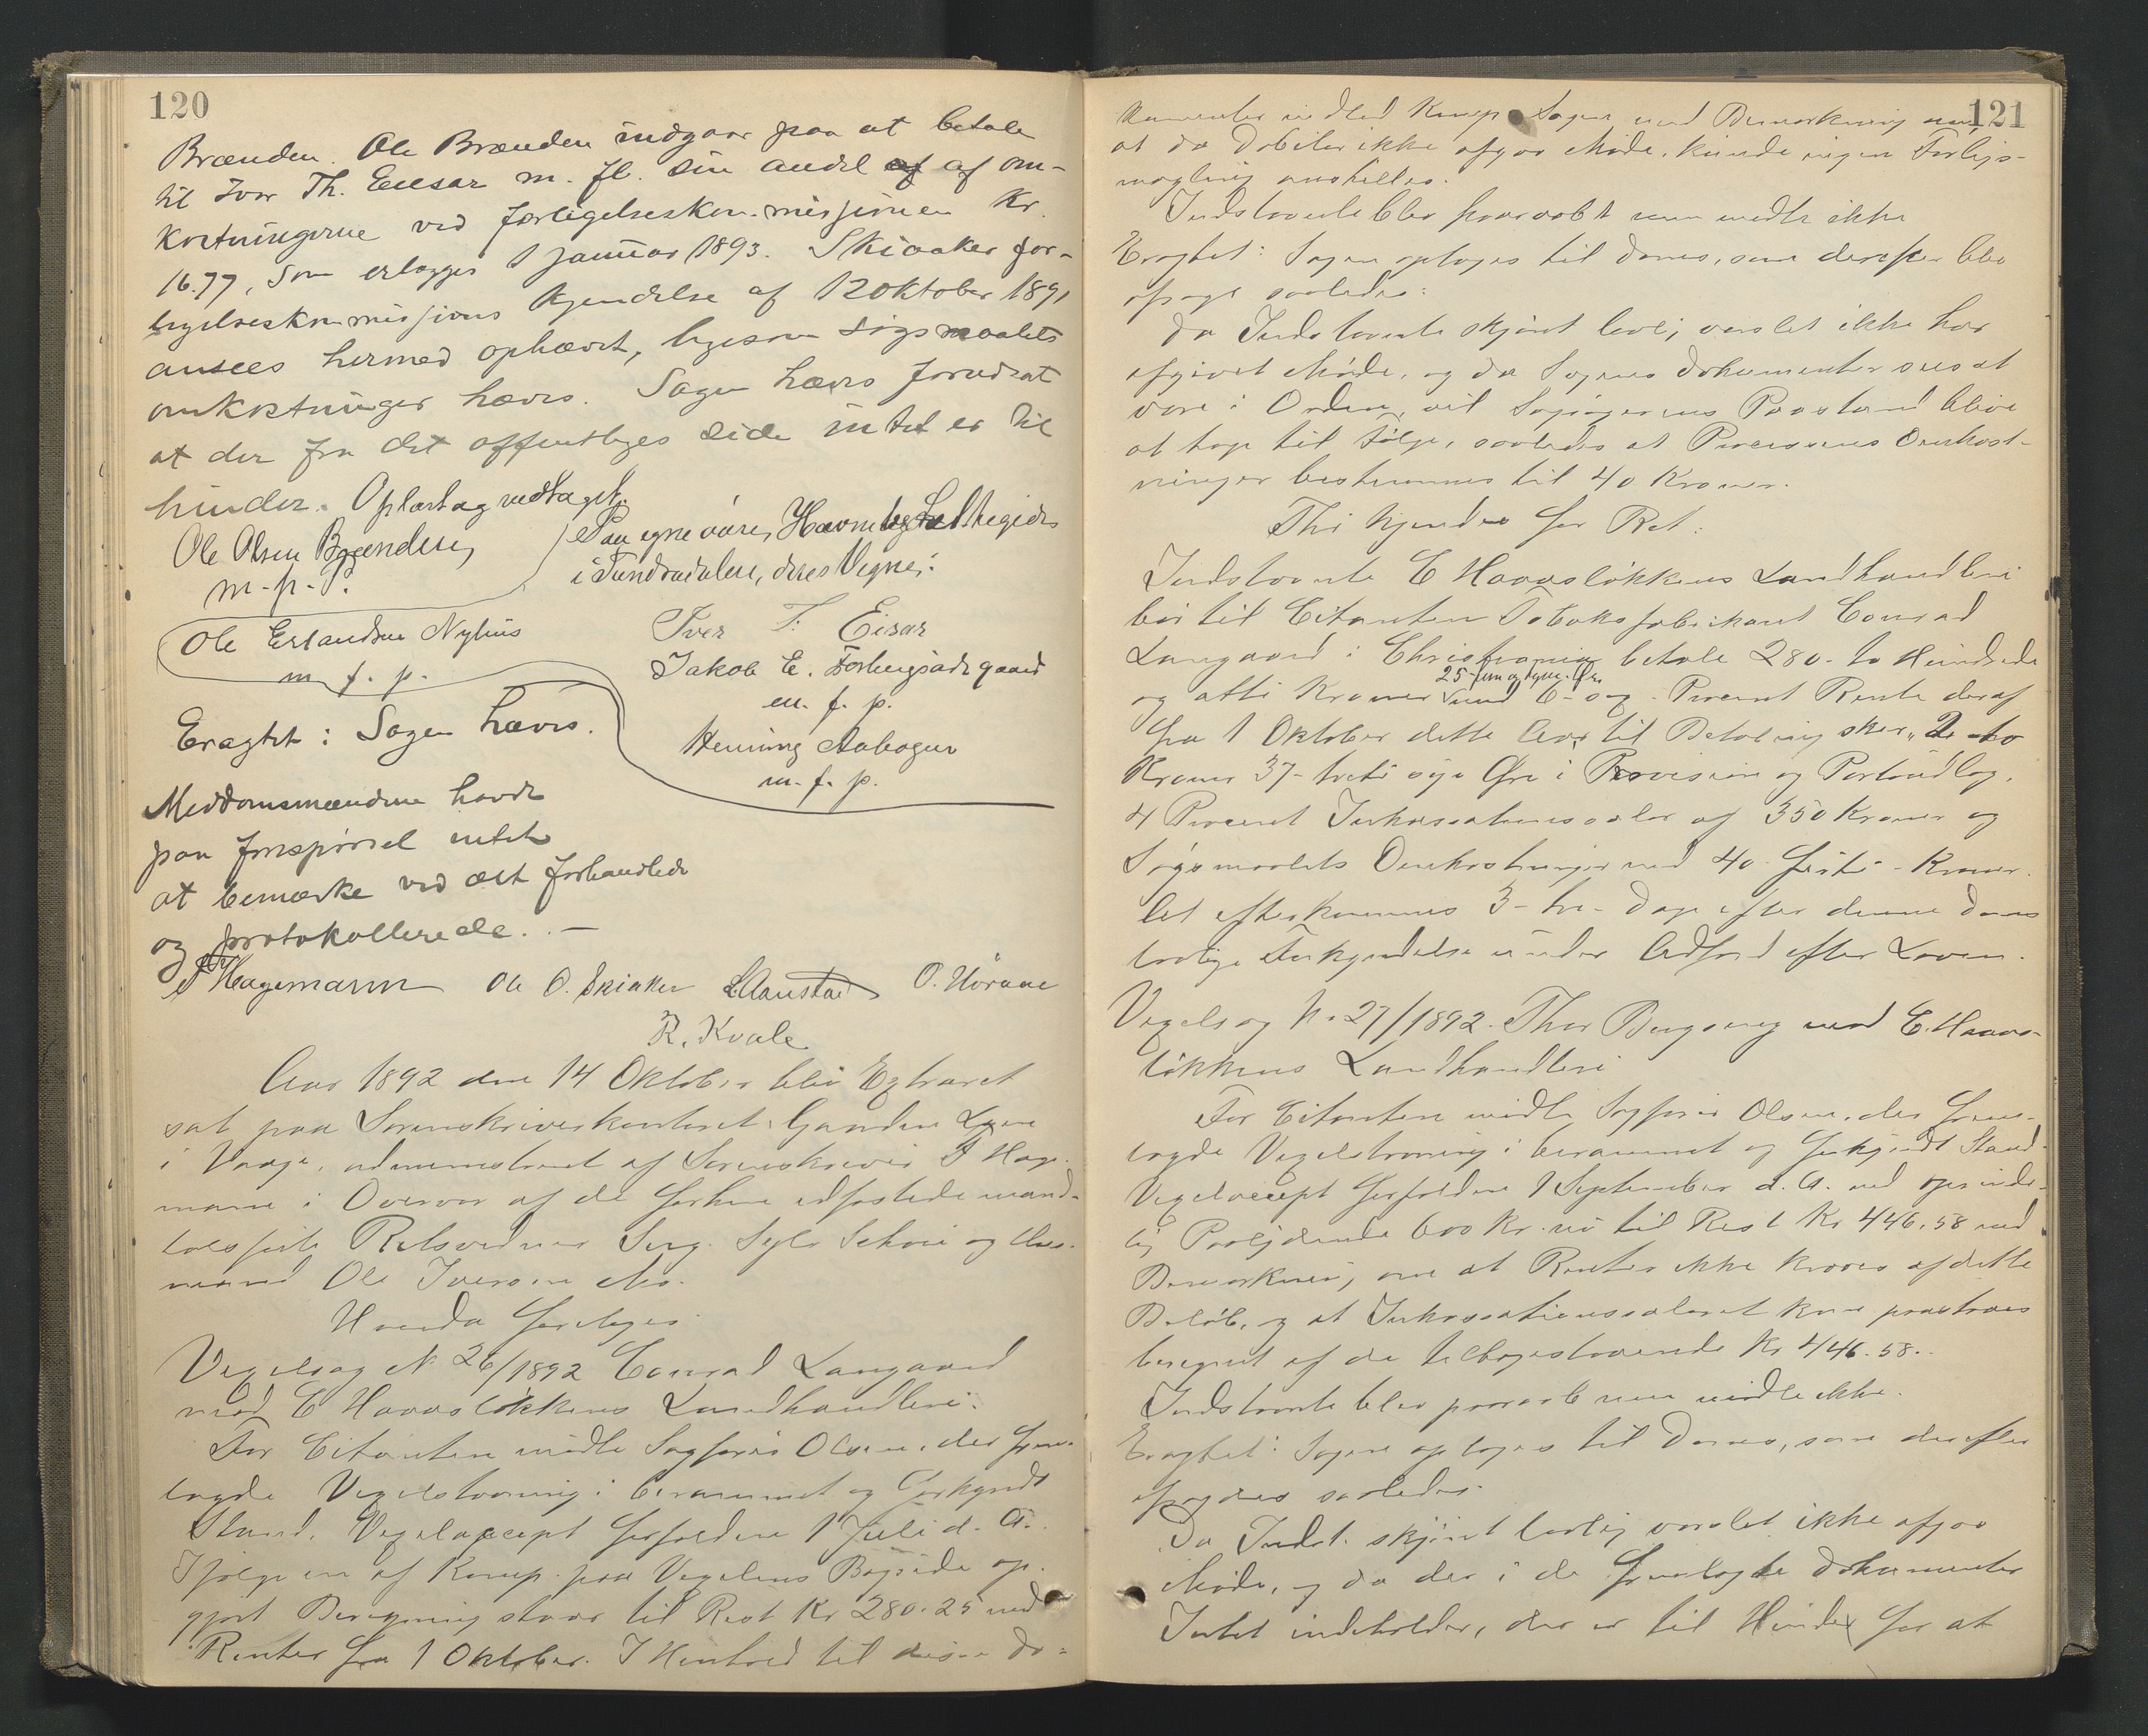 120
Brænden. Ole Brænden indgaar paa at betale
til Iver Th. Eiesar m. fl. sin andel af af om-
kostningerne ved forligelseskommissionen Kr.
16.77, som erlægges 1 januar 1893. Skiaaker for-
ligelseskommissions Kjendelse af 12 Oktober 1891
ansees hermed ophævet, ligesom Søgsmaalets
omkostninger hæves. Sagen hæves forudsat
at der fra det offentliges side intet er til
hinder. Oplæst og vedtaget.
Ole Olsen Brænden,
m. f. P.
Paa egne og øvrige Havneberettigede
i Tundradalen, deres Vegne:
Ole Erlandsen Nyhus
m. f. p.
Iver T. Eisar
Jakob E. Forbergsødegaard
m. f. p.
Henning Aabogen
m. f. p.
Eragtet: Sagen hæves.
Meddomsmændene havde
paa forespørsel intet
at bemærke ved det forhandlede
og protokollerede. —
F Hagemann Ole O. Skiaker L Aanstad O. Høraae
R. Kvale
Aar 1892 den 14 Oktober blev Extraret
sat paa Sorenskriverkontoret Gaarden
i Vaage, administreret af Sorenskriver F Hage-
mann i Overvær af de forhen edfæstede mand-
talsførte Retsvidner Serg. Syver Schou og Hus-
mand Ole Iversen Mo.
Hvorda foretoges
Vexelsag No 26/1892 Conrad Langaard
mod E Haavsløkkens Landhandleri.
For Citanten mødte Sagfører Olsen, der frem-
lagde Vexelstævning i berammet og forkyndt
Stand. Vexelaccept forfalden 1 Juli d. A.
Ifølge en af Komp. paa Vexelens Bagside op-
gjort Beregning staar til Rest Kr 280.25 med
Renter fra 1 Oktober. I Henhold til disse Do-
121
kumenter indlod Komp. Sagen med Bemærkning om,
at da Debitor ikke afgav Møde, kunde ingen Forligs-
mægling anstilles.
Indstævnte blev paaraabt men mødte ikke
Eragtet: Sagen optages til Doms, som derefter blev
afsagt saaledes:
Da Indstævnte skjønt lovlig varslet ikke har
afgivet Møde, og da Sagens Dokumenter sees at
være i Orden, vil Sagsøgerens Paastand blive
at tage til Følge, saaledes at Processens Omkost-
ninger bestemmes til 40 Kroner.
Thi kjendes for Ret:
Indstævnte E Haavsløkkens Landhandleri
bør til Citanten Tobaksfabrikant Conrad
Langaard i Christiania betale 280- to Hundrede
25 fem og tyve Øre
og otti Kroner med 6- sex Procent Rente deraf
fra 1 Oktober dette Aar til Betaling sker, 2- to
Kroner 37- treti syv Øre i Provision og Portoudlæg,
4 Procent Inkassationssalær af 350 Kroner og
Søgsmaalets Omkostninger med 40- førti - Kroner.
At efterkommes 3- tre- Dage efter denne Doms
lovlige Forkyndelse under Adfærd efter Loven.
Vexelsag No 27/1892. Thor Bergseng mod E. Haavs-
løkkens Landhandleri
For Citanten mødte Sagfører Olsen, der frem-
lagde Vexelstævning i berammet og forkyndt Stand.
Vexelaccept forfalden 1 September d. A. med oprinde-
lig Paalydende 600 Kr. nu til Rest Kr 446.58 med
Bemærkning, om at Renter ikke kræves af dette
Beløb, og at Inkassationssalæret kun paastaaes
beregnet af de tilbagestaaende Kr 446.58.
Indstævnte blev paaraabt men mødte ikke.
Eragtet: Sagen optages til Doms, som derefter
afsagdes saaledes:
Da Indst. skjønt lovlig varslet ikke afgav
Møde, og da der i de fremlagte Dokumenter
Intet indeholdes, der er til Hinder for at